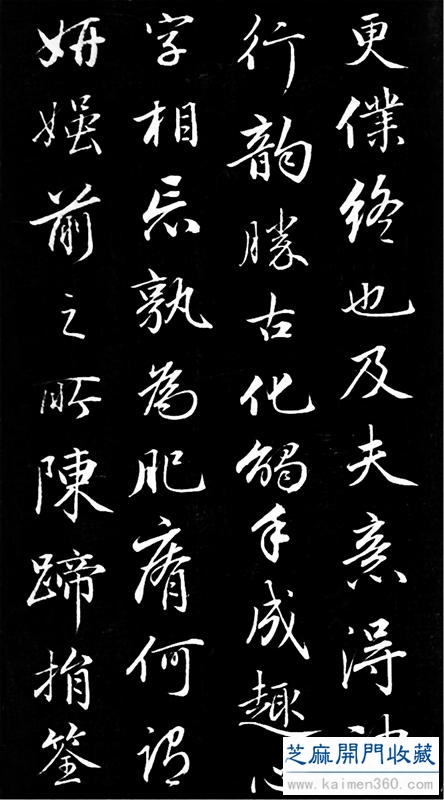 更僕終也及夫意得神
行韵勝古化觸手成趣心
字相忘孰為肥瘠何謂
妍媸前之所陳蹄捐筌
芝麻開門收藏
www.kaimen360.com